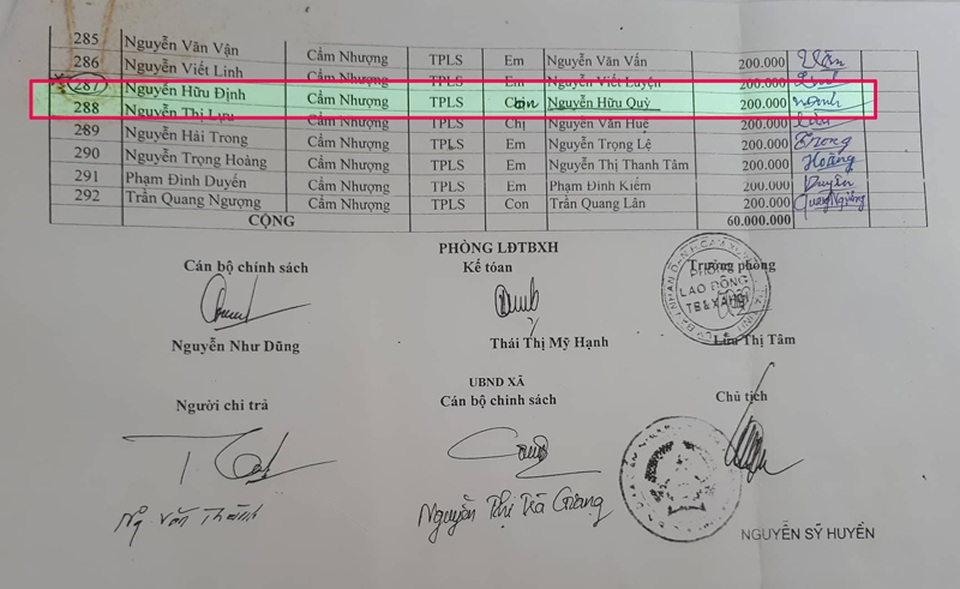 285 Nguyễn Văn Vận Cẩm Nhượng TPLS Em Nguyễn Văn Vấn 200.000 Vận
286 Nguyễn Viết Linh Cẩm Nhượng TPLS Em Nguyễn Viết Luyện 200.000 Linh
287 Nguyễn Hữu Định Cẩm Nhượng TPLS Nguyễn Hữu Quỳ 200.000
288 Nguyễn Thị Lựu Cẩm Nhượng TPLS Chị Nguyễn Văn Huệ 200.000 Lựu
289 Nguyễn Hải Trong Cẩm Nhượng TPLS Em Nguyễn Trọng Lệ 200.000 Trong
290 Nguyễn Trọng Hoàng Cẩm Nhượng TPLS Em Nguyễn Thị Thanh Tâm 200.000 Hoàng
291 Phạm Đình Duyến Cẩm Nhượng TPLS Em Phạm Đình Kiếm 200.000 Duyến
292 Trần Quang Ngượng Cẩm Nhượng TPLS Con Trần Quang Lân 200.000 Quang Ngượng
CỘNG 60.000.000
PHÒNG LĐTBXH
Cán bộ chính sách Kế tóan Trưởng phòng
LAO ĐỘNG
TB&XÃ HỘI
Nguyễn Như Dũng Thái Thị Mỹ Hạnh Lưu Thị Tâm
UBND XÃ
Người chi trả Cán bộ chinh sách Chủ tịch
Ng. Văn Thành Nguyễn Thị Trà Giang NGUYỄN SỸ HUYỀN